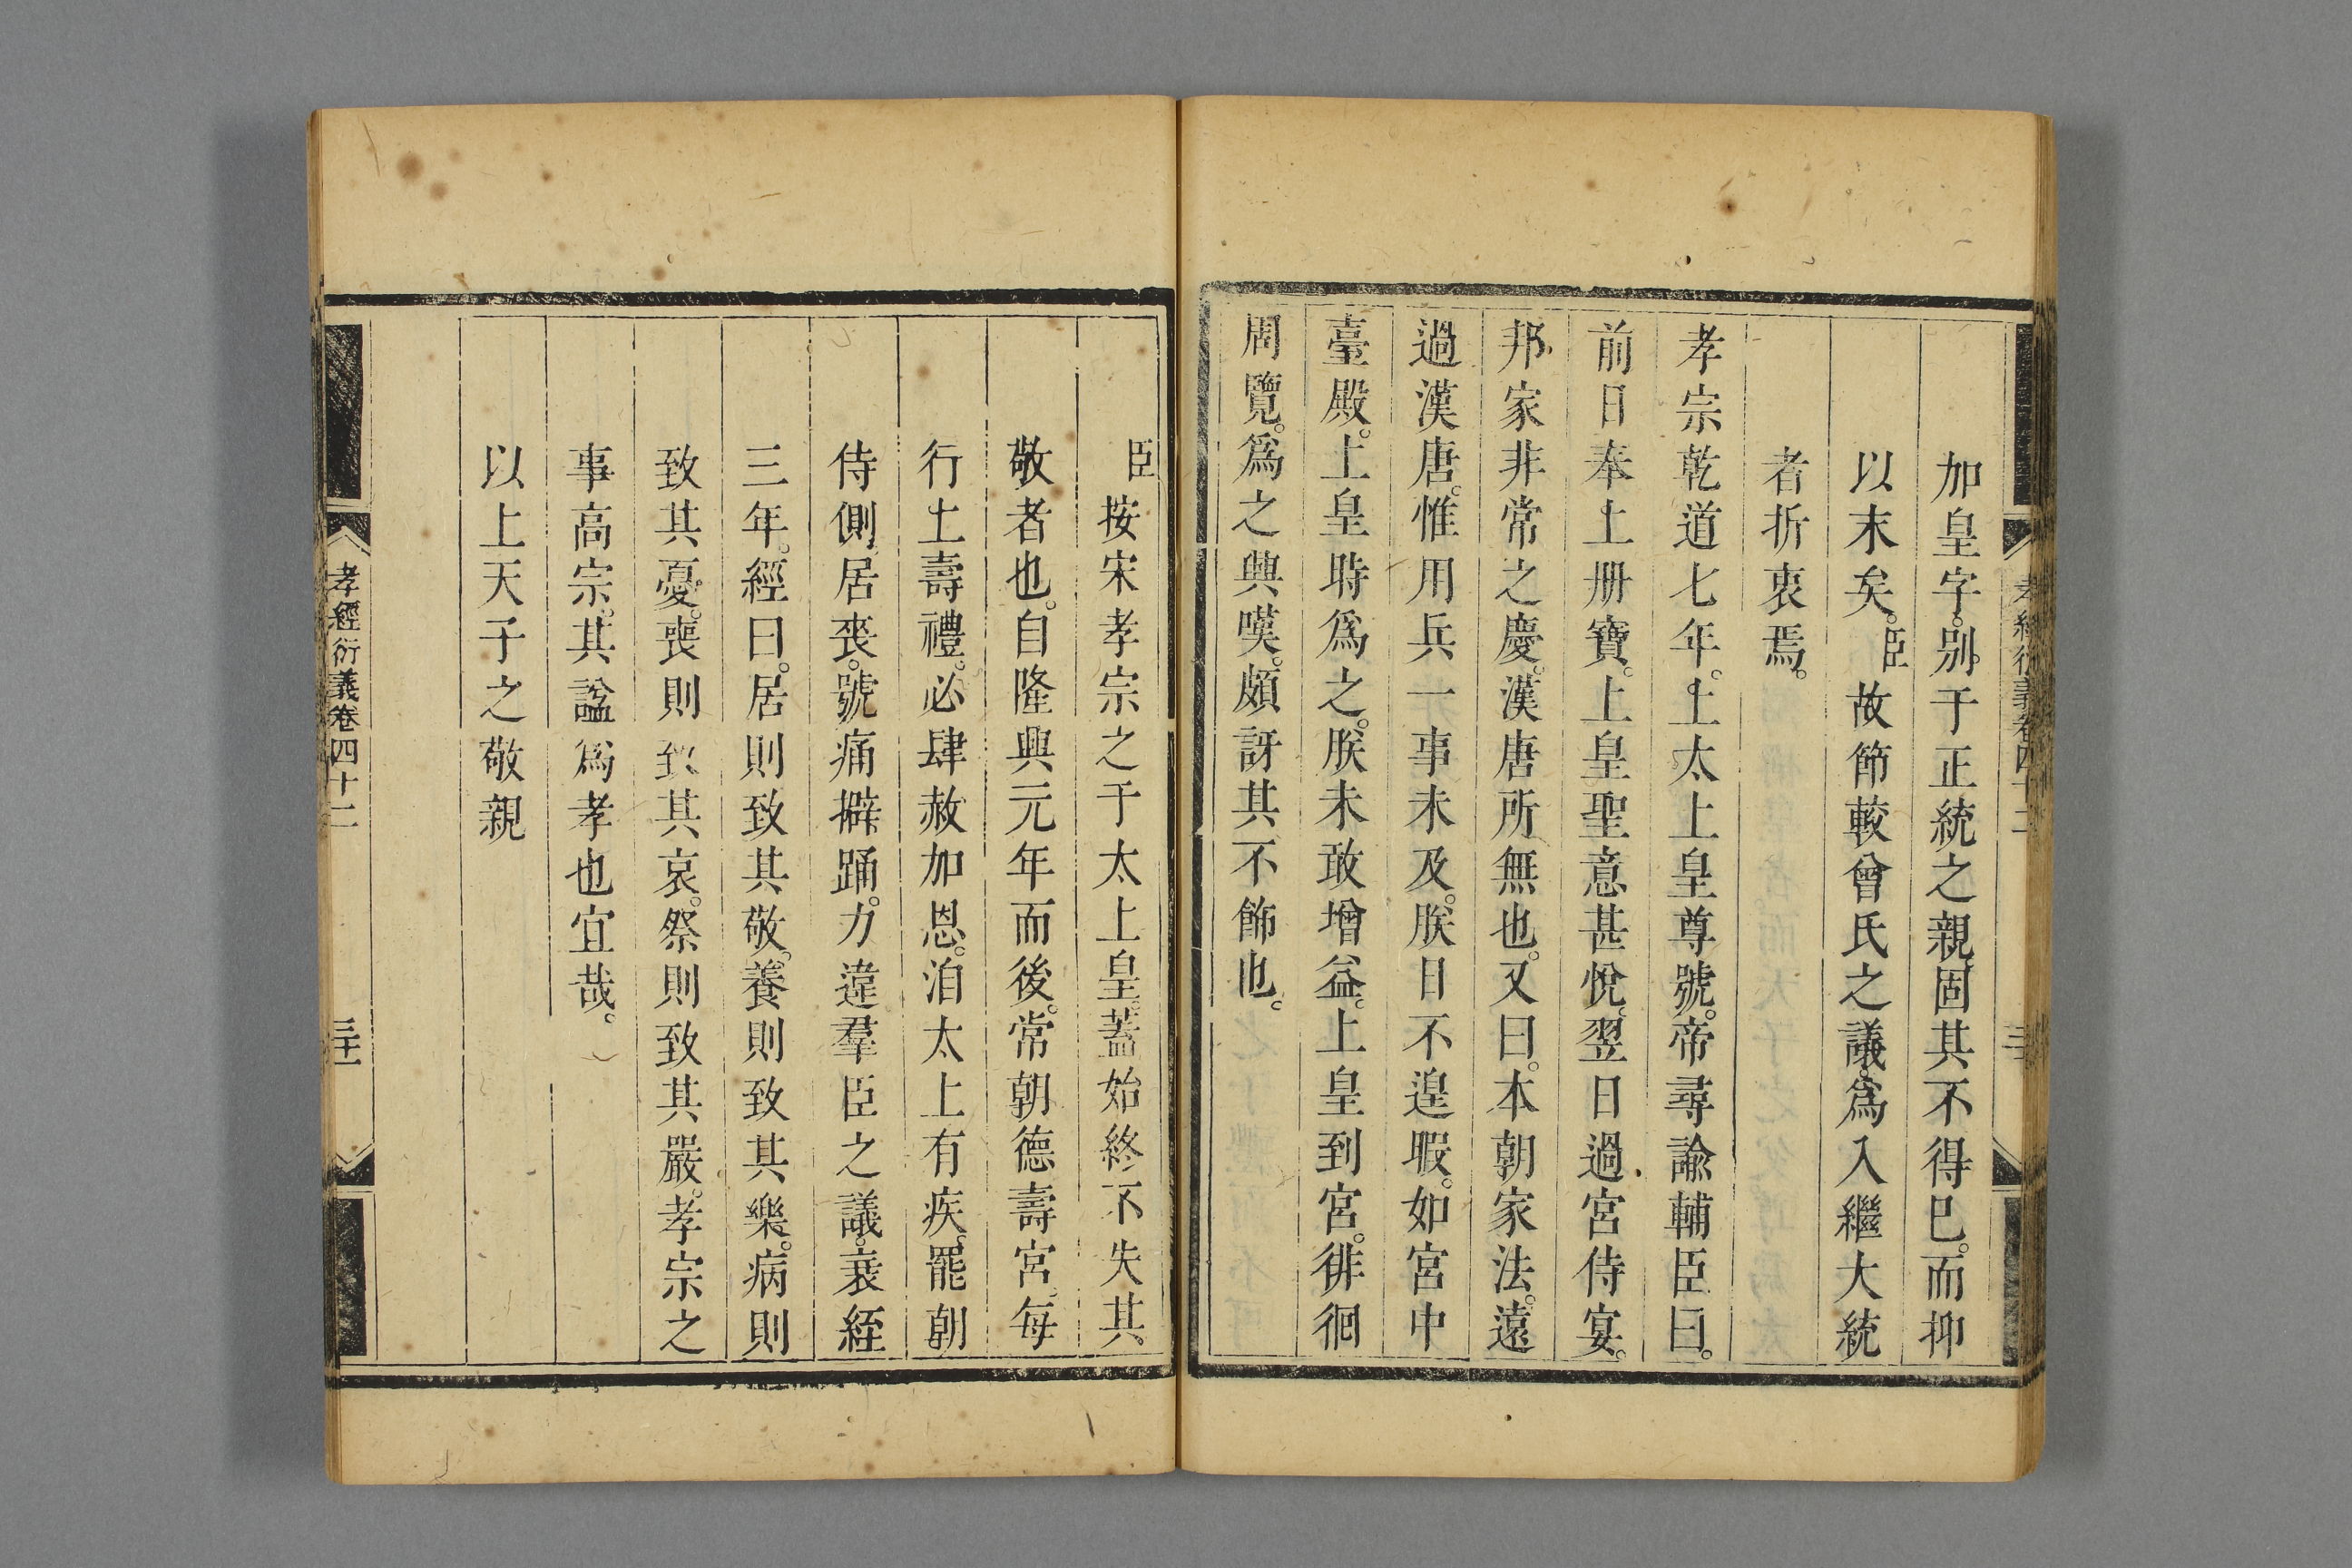 加皇字。別于正統之親。固其不得已。而抑
以末矣。臣故節較曾氏之議。爲入繼大統
者折衷焉。
孝宗乾道七年。上太上皇尊號。帝尋諭輔臣曰。
前日奉上册寶。上皇聖意甚悅。翌日過宮侍宴。
邦家非常之慶。漢唐所無也。又曰。本朝家法。遠
過漢唐。惟用兵一事未及。朕日不遑暇。如宮中
臺殿。上皇時爲之。朕未敢增益。上皇到宮。徘徊
周覽。爲之興嘆。頗訝其不飾也。
臣按宋孝宗之于太上皇。蓋始終不失其
敬者也。自隆興元年而後。常朝德壽宮。每
行上壽禮。必肆赦加恩。洎太上有疾。罷朝
侍側。居喪。號痛擗踊。力違羣臣之議。衰絰
三年。經曰。居則致其敬。養則致其樂。病則
致其憂。喪則致其哀。祭則致其嚴。孝宗之
事高宗。其諡爲孝也宜哉。
以上天子之敬親
孝經衍義卷四十二
三十一